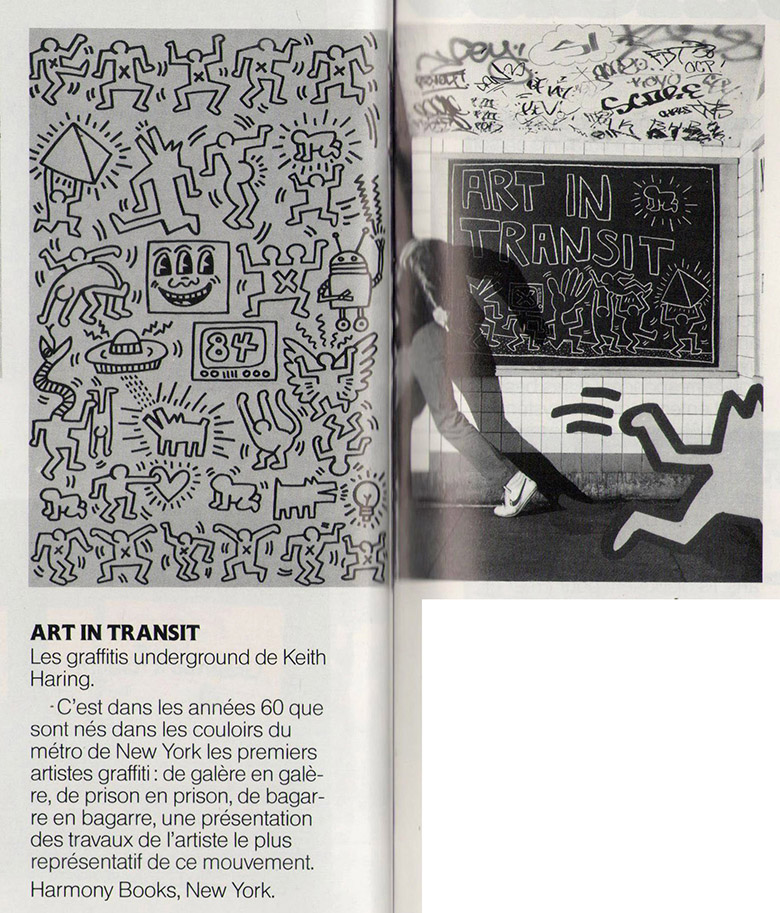 84
ART IN
TRANSIT
ART IN TRANSIT
Les graffitis underground de Keith
Haring.
-C'est dans les années 60 que
sont nés dans les couloirs du
métro de New York les premiers
artistes graffiti : de galère en galè-
re, de prison en prison, de bagar-
re en bagarre, une présentation
des travaux de l'artiste le plus
représentatif de ce mouvement.
Harmony Books, New York.